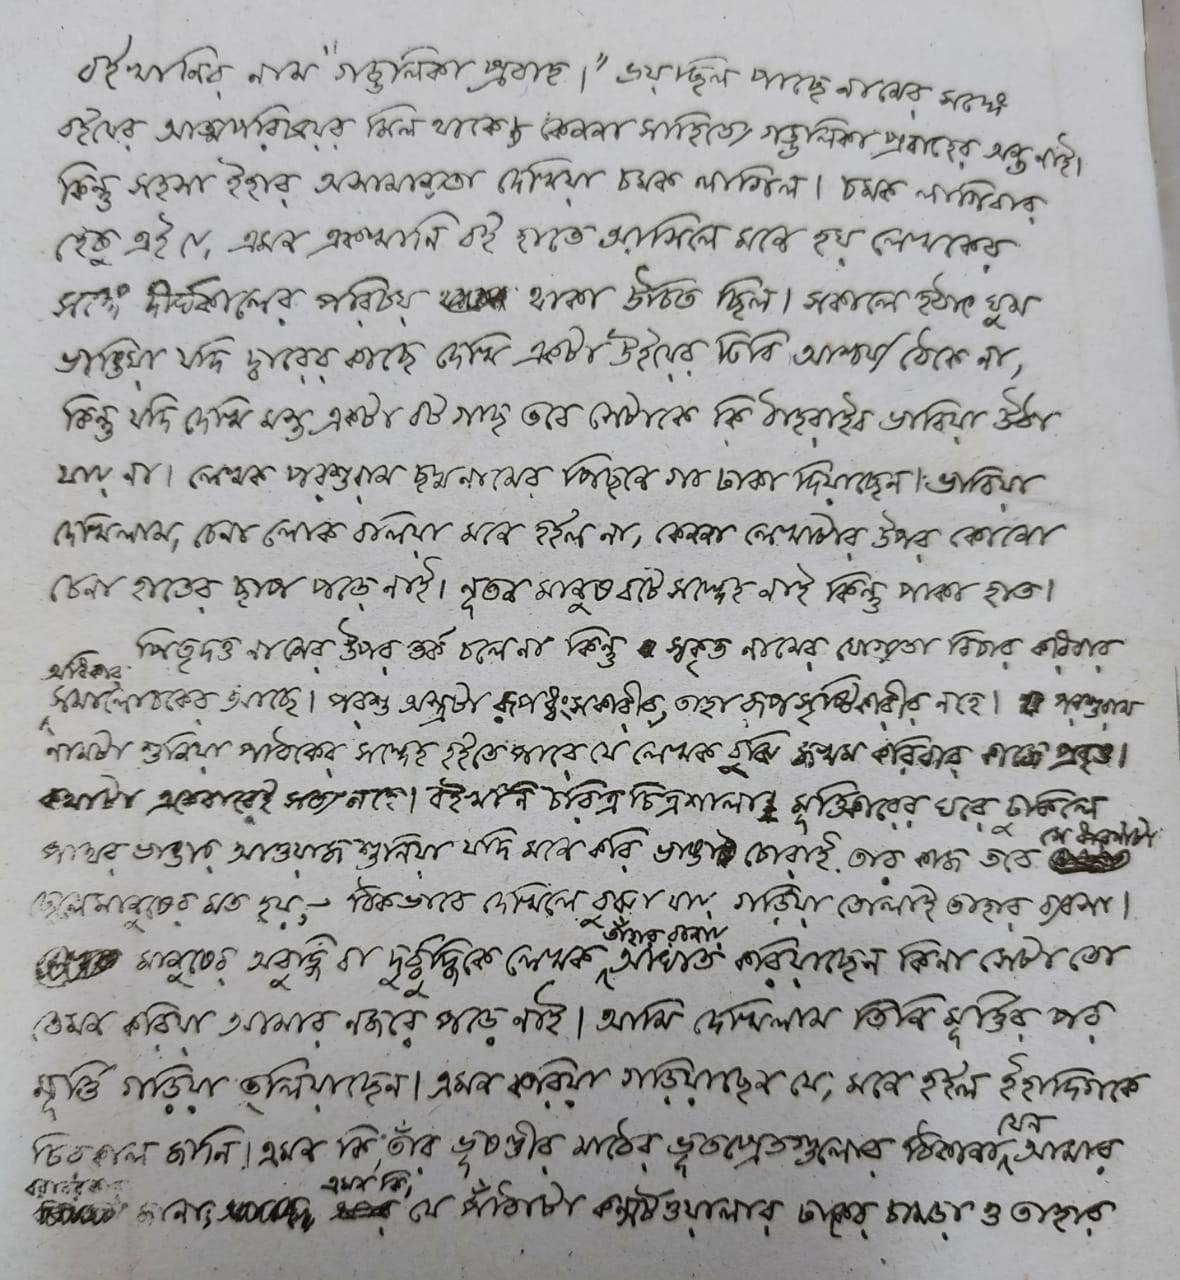 বইখানির নাম "গড্ডলিকা প্রবাহ।" ভয় ছিল পাছে নামের সঙ্গে
বইয়ের আত্মপরিচয়ের মিল থাকে, কেননা সাহিত্যে গড্ডলিকা প্রবাহের অন্ত নাই।
কিন্তু সহসা ইহার অসামান্যতা দেখিয়া চমক লাগিল। চমক লাগিবার
হেতু এই যে, এমন একখানি বই হাতে আসিলে মনে হয় লেখকের
সঙ্গে দীর্ঘকালের পরিচয় থাকা উচিত ছিল। সকালে হঠাৎ ঘুম
ভাঙিয়া যদি দ্বারের কাছে দেখি একটা উইয়ের ঢিবি আশ্চর্য্য ঠেকে না,
কিন্তু যদি দেখি মস্ত একটা বট গাছ তবে সেটাকে কি ঠাহরাইব ভাবিয়া উঠা
যায় না। লেখক পরশুরাম ছদ্ম নামের পিছনে গা ঢাকা দিয়াছেন। ভাবিয়া
দেখিলাম, চেনা লোক বলিয়া মনে হইল না, কেননা লেখাটার উপর কোনো
চেনা হাতের ছাপ পড়ে নাই। নূতন মানুষ বটে সন্দেহ নাই কিন্তু পাকা হাত।
পিতৃদত্ত নামের উপর তর্ক চলে না কিন্তু স্বকৃত নামের যোগ্যতা বিচার করিবার
অধিকার
সমালোচকের আছে। পরশু অস্ত্রটা রূপধ্বংসকারীর, তাহা রূপসৃষ্টিকারীর নহে। পরশুরাম
নামটা শুনিয়া পাঠকের সন্দেহ হইতে পারে যে লেখক বুঝি জখম করিবার কাজে প্রবৃত্ত।
কথাটা একেবারেই সত্য নহে। বইখানি চরিত্র চিত্রশালা। মূর্ত্তিকারের ঘরে ঢুকিলে
পাথর ভাঙার আওয়াজ শুনিয়া যদি মনে করি ভাঙাচোরাই তার কাজ তবে সে ধারণাটা
ছেলেমানুষের মত হয়,— ঠিকভাবে দেখিলে বুঝা যায় গড়িয়া তোলাই তাহার ব্যবসা।
মানুষের অবুদ্ধি বা দুর্ব্বুদ্ধিকে লেখক তাঁহার রচনায় আঘাত করিয়াছেন কিনা সেটা তো
তেমন করিয়া আমার নজরে পড়ে নাই। আমি দেখিলাম তিনি মূর্ত্তির পর
মূর্ত্তি গড়িয়া তুলিয়াছেন। এমন করিয়া গড়িয়াছেন যে, মনে হইল ইঁহাদিগকে
চিরকাল জানি। এমন কি, তাঁর ভূষণ্ডীর মাঠের ভূতপ্রেতগুলোর ঠিকানা যেন আমার
বরাবরকার জানা, এমন কি, যে পাঁঠাটা কন্সর্টওয়ালার ঢাকের চামড়া ও তাহার